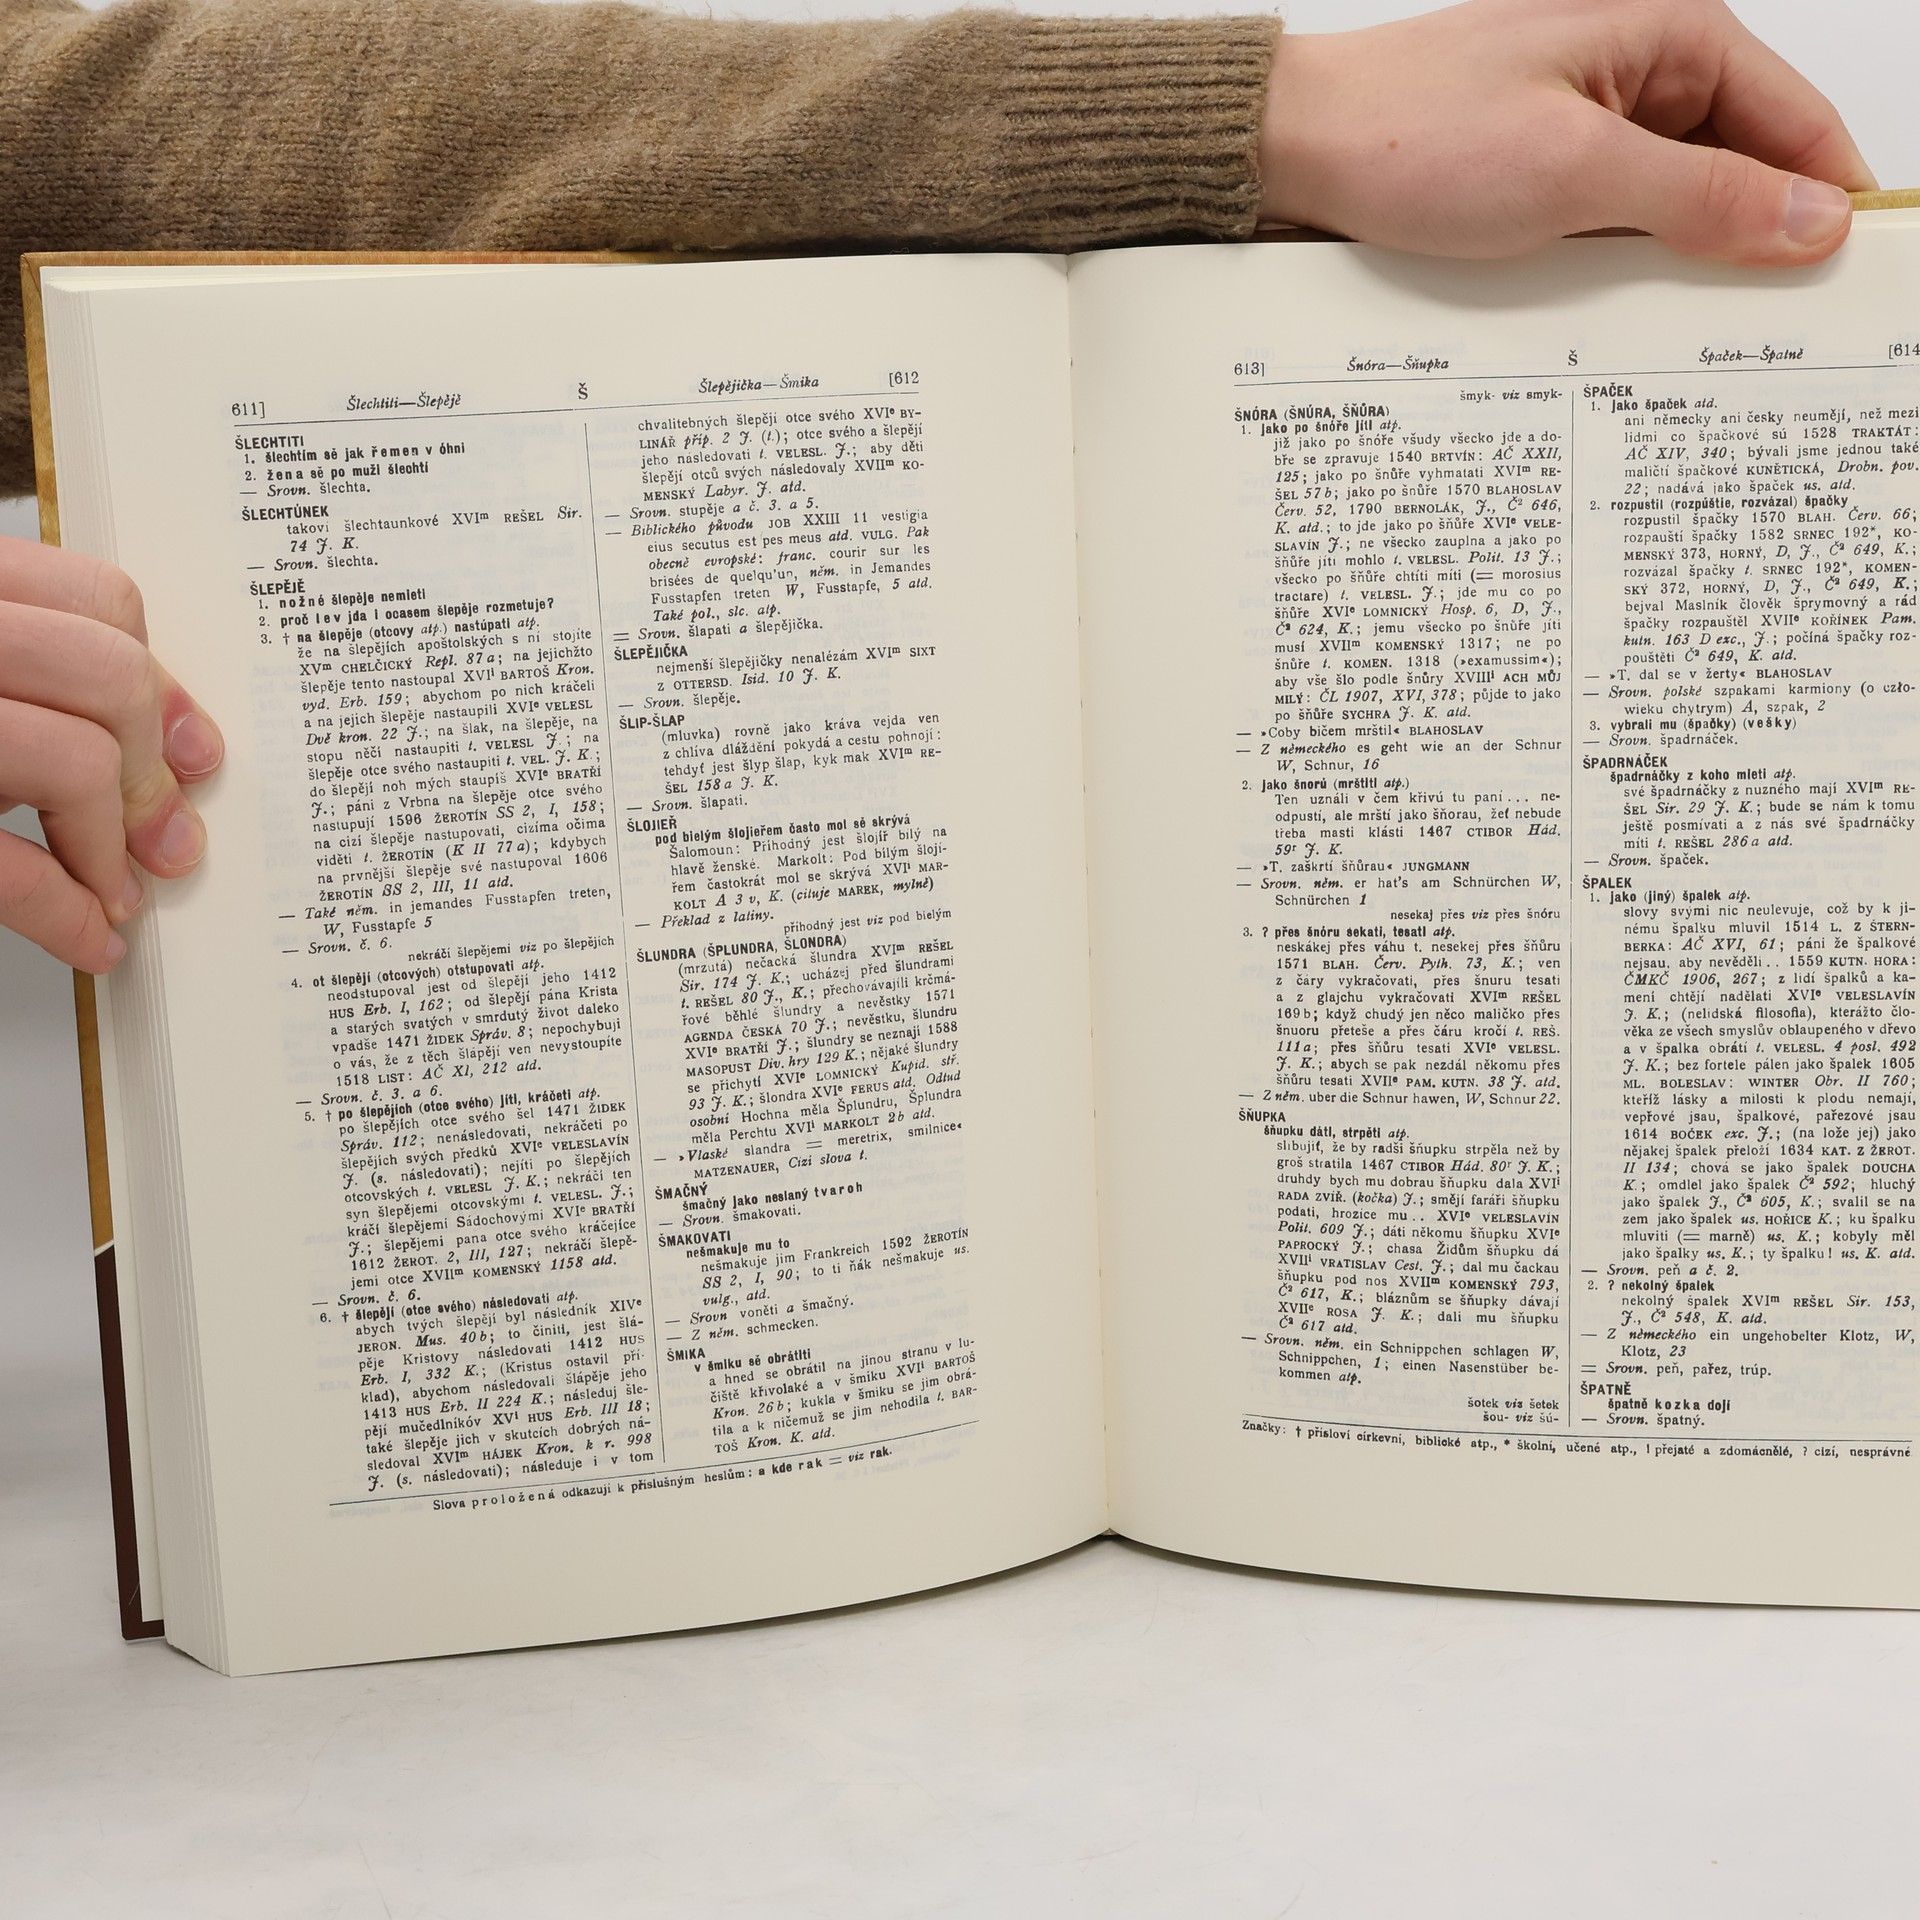 611] Šlechtiti—Šlepějě Š Šlepějička—Šmika [612
ŠLECHTITI
1. šlechtím sě jak řemen v óhni
2. žena sě po muži šlechtí
— Srovn. šlechta.
ŠLECHTÚNEK
takoví šlechtaunkové XVIm REŠEL Sir.
74 J. K.
— Srovn. šlechta.
ŠLEPĚJĚ
1. nožné šlepěje nemleti
2. proč lev jda i ocasem šlepěje rozmetuje?
3. † na šlepěje (otcovy atp.) nastúpati atp.
že na šlepějích apoštolských s ní stojíte
XVm CHELČICKÝ Repl. 87a; na jejichžto
šlepěje tento nastoupal XVIi BARTOŠ Kron.
vyd. Erb. 159; abychom po nich kráčeli
a na jejich šlepěje nastaupili XVIe VELESL
Dvě kron. 22 J.; na šlak, na šlepěje, na
stopu něčí nastaupiti t. VELESL J.; na
šlepěje otce svého nastaupiti t. VEL. J. K.;
do šlepějí noh mých staupíš XVIe BRATŘÍ
J.; páni z Vrbna na šlepěje otce svého
nastupují 1596 ŽEROTÍN SS 2, I, 158;
na cizí šlepěje nastupovati, cizíma očima
viděti t. ŽEROTÍN (K II 77a); kdybych
na prvnější šlepěje své nastupoval 1606
ŽEROTÍN SS 2, III, 11 atd.
— Také něm. in jemandes Fusstapfen treten,
W, Fusstapfe 5
— Srovn. č. 6.
nekráčí šlepějemi viz po šlepějích
4. ot šlepějí (otcových) otstupovati atp.
neodstupoval jest od šlepějí jeho 1412
HUS Erb. I, 162; od šlepějí pána Krista
a starých svatých v smrdutý život daleko
vpadše 1471 ŽIDEK Správ. 8; nepochybuji
o vás, že z těch šlápějí ven nevystoupíte
1518 LIST: AČ XI, 212 atd.
— Srovn. č. 3. a 6.
5. † po šlepějích (otce svého) jíti, kráčeti atp.
po šlepějích otce svého šel 1471 ŽIDEK
Správ. 112; nenásledovati, nekráčeti po
šlepějích svých předků XVIe VELESLAVÍN
J. (s. následovati); nejíti po šlepějích
otcovských t. VELESL J. K.; nekráčí ten
syn šlepějemi otcovskými t. VELESL. J.;
kráčí šlepějemi Sádochovými XVIe BRATŘÍ
J.; šlepějemi pana otce svého kráčejíce
1612 ŽEROT. 2, III, 127; nekráčí šlepě-
jemi otce XVIIm KOMENSKÝ 1158 atd.
— Srovn. č. 6.
6. † šlepějí (otce svého) následovati atp.
abych tvých šlepějí byl následník XIVe
JERON. Mus. 40b; to činiti, jest šlá-
pěje Kristovy následovati 1412 HUS
Erb. I, 332 K.; (Kristus ostavil pří-
klad), abychom následovali šlápěje jeho
1413 HUS Erb. II 224 K.; následuj šle-
pějí mučedlníkóv XVi HUS Erb. III 18;
také šlepěje jich v skutcích dobrých ná-
sledoval XVIm HÁJEK Kron. k r. 998
J. (s. následovati); následuje i v tom
chvalitebných šlepějí otce svého XVIe BY-
LINÁŘ příp. 2 J. (t.); otce svého a šlepějí
jeho následovati t. VELESL. J.; aby děti
šlepějí otců svých následovaly XVIIm KO-
MENSKÝ Labyr. J. atd.
— Srovn. stupěje a č. 3. a 5.
— Biblického původu JOB XXIII 11 vestigia
eius secutus est pes meus atd. VULG. Pak
obecně evropské: franc. courir sur les
brisées de quelqu'un, něm. in Jemandes
Fusstapfen treten W, Fusstapfe, 5 atd.
Také pol., slc. atp.
= Srovn. šlapati a šlepějička.
ŠLEPĚJIČKA
nejmenší šlepějičky nenalézám XVIm SIXT
z OTTERSD. Isid. 10 J. K.
— Srovn. šlepěje.
ŠLIP-ŠLAP
(mluvka) rovně jako kráva vejda ven
z chlíva dláždění pokydá a cestu pohnojí:
tehdyť jest šlyp šlap, kyk mak XVIm RE-
ŠEL 158a J. K.
— Srovn. šlapati.
ŠLOJIEŘ
pod bielým šlojieřem často mol sě skrývá
Šalomoun: Příhodný jest šlojíř bílý na
hlavě ženské. Markolt: Pod bílým šlojí-
řem častokrát mol se skrývá XVIi MAR-
KOLT A 3 v, K. (cituje MAREK, mylně)
— Překlad z latiny.
příhodný jest viz pod bielým
ŠLUNDRA (ŠPLUNDRA, ŠLONDRA)
(mrzutá) nečacká šlundra XVIm REŠEL
Sir. 174 J. K.; ucházej před šlundrami
t. REŠEL 80 J., K.; přechovávajíli krčmá-
řové běhlé šlundry a nevěstky 1571
AGENDA ČESKÁ 70 J.; nevěstku, šlundru
XVIe BRATŘÍ J.; šlundry se neznají 1588
MASOPUST Div. hry 129 K.; nějaké šlundry
se přichytí XVIe LOMNICKÝ Kupid. stř.
93 J. K.; šlondra XVIe FERUS atd. Odtud
osobní Hochna měla Šplundru, Šplundra
měla Perchtu XVIi MARKOLT 2b atd.
— »Vlaské slandra = meretrix, smilnice«
MATZENAUER, Cizí slova t.
ŠMAČNÝ
šmačný jako neslaný tvaroh
— Srovn. šmakovati.
ŠMAKOVATI
nešmakuje mu to
nešmakuje jim Frankreich 1592 ŽEROTÍN
SS 2, I, 90; to ti ňák nešmakuje us.
vulg., atd.
— Srovn voněti a šmačný.
— Z něm. schmecken.
ŠMIKA
v šmiku sě obrátiti
a hned se obrátil na jinou stranu v lu-
čiště křivolaké a v šmiku XVIi BARTOŠ
Kron. 26b; kukla v šmiku se jim obrá-
tila a k ničemuž se jim nehodila t. BAR-
TOŠ Kron. K. atd.
Slova proložená odkazují k příslušným heslům: a kde rak = viz rak.
613] Šnóra—Šňupka Š Špaček—Špatně [614
šmyk- viz smyk-
ŠNÓRA (ŠNÚRA, ŠŇŮRA)
1. jako po šnóře jíti atp.
již jako po šnóře všudy všecko jde a do-
bře se zpravuje 1540 BRTVÍN: AČ XXII,
125; jako po šnůře vyhmatati XVIm RE-
ŠEL 57b; jako po šnůře 1570 BLAHOSLAV
Červ. 52, 1790 BERNOLÁK, J., Č² 646,
K. atd.; to jde jako po šňůře XVIe VELE-
SLAVÍN J.; ne všecko zauplna a jako po
šňůře jíti mohlo t. VELESL. Polit. 13 J.;
všecko po šňůře chtíti míti (= morosius
tractare) t. VELESL. J.; jde mu co po
šňůře XVIe LOMNICKÝ Hosp. 6, D, J.,
Č² 624, K.; jemu všecko po šňůře jíti
musí XVIIm KOMENSKÝ 1317; ne po
šnůře t. KOMEN. 1318 (»examussim«);
aby vše šlo podle šnůry XVIIIi ACH MŮJ
MILÝ: ČL 1907, XVI, 378; půjde to jako
po šňůře SYCHRA J. K. atd.
— »Coby bičem mrštil« BLAHOSLAV
— Z německého es geht wie an der Schnur
W, Schnur, 16
2. jako šnorú (mrštiti atp.)
Ten uználi v čem křivú tu paní... ne-
odpustí, ale mrští jako šňorau, žeť nebude
třeba masti klásti 1467 CTIBOR Hád.
59r J. K.
— »T. zaškrtí šňůrau« JUNGMANN
— Srovn. něm. er hat's am Schnürchen W,
Schnürchen 1
nesekaj přes viz přes šnóru
3. ? přes šnóru sekati, tesati atp.
neskákej přes váhu t. nesekej přes šňůru
1571 BLAH. Červ. Pyth. 73, K.; ven
z čáry vykračovati, přes šnuru tesati
a z glajchu vykračovati XVIm REŠEL
169b; když chudý jen něco maličko přes
šnuoru přeteše a přes čáru kročí t. REŠ.
111a; přes šňůru tesati XVIe VELESL.
J. K.; abych se pak nezdál někomu přes
šňůru tesati XVIIe PAM. KUTN. 38 J. atd.
— Z něm. uber die Schnur hawen, W, Schnur 22.
ŠŇUPKA
šňupku dáti, strpěti atp.
slibujíť, že by radši šňupku strpěla než by
groš stratila 1467 CTIBOR Hád. 80r J. K.;
druhdy bych mu dobrau šňupku dala XVIi
RADA ZVÍŘ. (kočka) J.; smějí faráři šňupku
podati, hrozíce mu.. XVIe VELESLAVÍN
Polit. 609 J.; dáti někomu šňupku XVIe
PAPROCKÝ J.; chasa Židům šňupku dá
XVIIi VRATISLAV Cest. J.; dal mu čackau
šňupku pod nos XVIIm KOMENSKÝ 793,
Č² 617, K.; bláznům se šňupky dávají
XVIIe ROSA J. K.; dali mu šňupku
Č² 617 atd.
— Srovn. něm. ein Schnippchen schlagen W,
Schnippchen, 1; einen Nasenstüber be-
kommen atp.
šotek viz šetek
šou- viz šú-
ŠPAČEK
1. jako špaček atd.
ani německy ani česky neumějí, než mezi
lidmi co špačkové sú 1528 TRAKTÁT:
AČ XIV, 340; bývali jsme jednou také
maličtí špačkové KUNĚTICKÁ, Drobn. pov.
22; nadává jako špaček us. atd.
2. rozpustil (rozpúštie, rozvázal) špačky
rozpustil špačky 1570 BLAH. Červ. 66;
rozpauští špačky 1582 SRNEC 192*, KO-
MENSKÝ 373, HORNÝ, D, J., Č² 649, K.;
rozvázal špačky t. SRNEC 192*, KOMEN-
SKÝ 372, HORNÝ, D, J., Č² 649, K.;
bejval Maslník člověk šprymovný a rád
špačky rozpauštěl XVIIe KOŘÍNEK Pam.
kutn. 163 D exc., J.; počíná špačky roz-
pouštěti Č² 649, K. atd.
— »T. dal se v žerty« BLAHOSLAV
— Srovn. polské szpakami karmiony (o czło-
wieku chytrym) A, szpak, 2
3. vybrali mu (špačky) (vešky)
— Srovn. špadrnáček.
ŠPADRNÁČEK
špadrnáčky z koho mieti atp.
své špadrnáčky z nuzného mají XVIm RE-
ŠEL Sir. 29 J. K.; bude se nám k tomu
ještě posmívati a z nás své špadrnáčky
míti t. REŠEL 286a atd.
— Srovn. špaček.
ŠPALEK
1. jako (jiný) špalek atp.
slovy svými nic neulevuje, což by k ji-
nému špalku mluvil 1514 L. Z ŠTERN-
BERKA: AČ XVI, 61; páni že špalkové
nejsau, aby nevěděli.. 1559 KUTN. HORA:
ČMKČ 1906, 267; z lidí špalků a ka-
mení chtějí nadělati XVIe VELESLAVÍN
J. K.; (nelidská filosofia), kterážto člo-
věka ze všech smyslův oblaupeného v dřevo
a v špalka obrátí t. VELESL. 4 posl. 492
J. K.; bez fortele pálen jako špalek 1605
ML. BOLESLAV: WINTER Obr. II 760;
kteříž lásky a milosti k plodu nemají,
vepřové jsau, špalkové, pařezové jsau
1614 BOČEK exc. J.; (na lože jej) jako
nějakej špalek přeloží 1634 KAT. Z ŽEROT.
II 134; chová se jako špalek DOUCHA
K.; omdlel jako špalek Č² 592; hluchý
jako špalek J., Č² 605, K.; svalil se na
zem jako špalek us. HOŘICE K.; ku špalku
mluviti (= marně) us. K.; kobyly měl
jako špalky us. K.; ty špalku! us. K. atd.
— Srovn. peň a č. 2.
2. ? nekolný špalek
nekolný špalek XVIm REŠEL Sir. 153,
J., Č² 548, K. atd.
— Z německého ein ungehobelter Klotz, W,
Klotz, 23
= Srovn. peň, pařez, trúp.
ŠPATNĚ
špatně kozka dojí
— Srovn. špatný.
Značky: † přísloví církevní, biblické atp., * školní, učené atp., ! přejaté a zdomácnělé, ? cizí, nesprávné